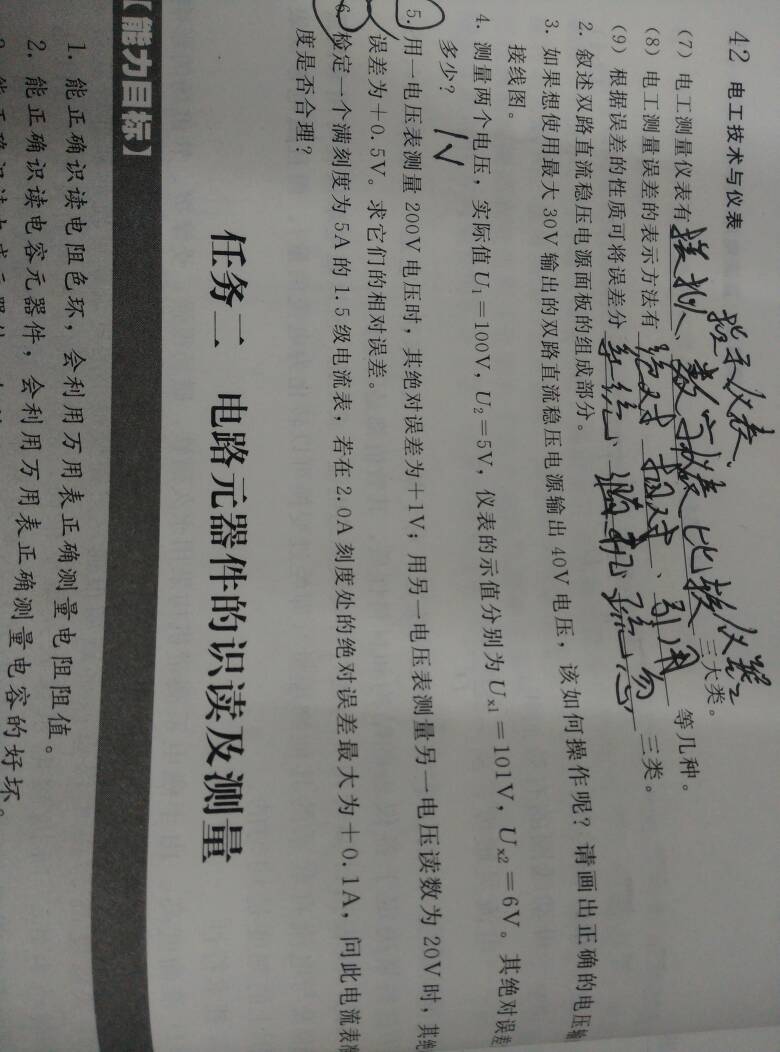 42 电工技术与仪表
指示仪表、
(7) 电工测量仪表有模拟、数字仪表 比较仪器三大类。
(8) 电工测量误差的表示方法有 绝对、相对、引用 等几种。
(9) 根据误差的性质可将误差分 系统、随机、疏忽 三类。
2. 叙述双路直流稳压电源面板的组成部分。
3. 如果想使用最大30V输出的双路直流稳压电源输出40V电压，该如何操作呢？请画出正确的电压输
接线图。
4. 测量两个电压，实际值U₁=100V，U₂=5V，仪表的示值分别为Uₓ₁=101V，Uₓ₂=6V。其绝对误差
多少？ 1V
5. 用一电压表测量200V电压时，其绝对误差为+1V；用另一电压表测量另一电压读数为20V时，其绝
误差为+0.5V。求它们的相对误差。
6. 检定一个满刻度为5A的1.5级电流表，若在2.0A刻度处的绝对误差最大为+0.1A，问此电流表准
度是否合理？
任务二 电路元器件的识读及测量
【能力目标】
1. 能正确识读电阻色环，会利用万用表正确测量电阻阻值。
2. 能正确识读电容元器件，会利用万用表正确测量电容的好坏。